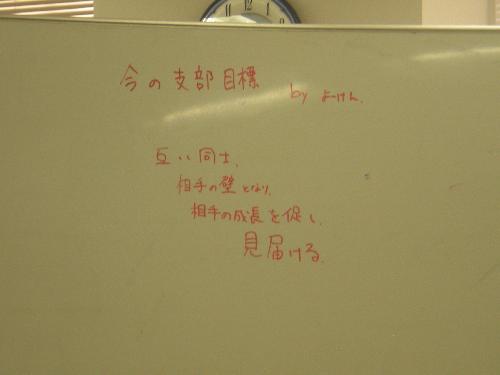 今の支部目標 by よーけん.
互い同士、
相手の壁となり、
相手の成長を促し、
見届ける。
11 12 1